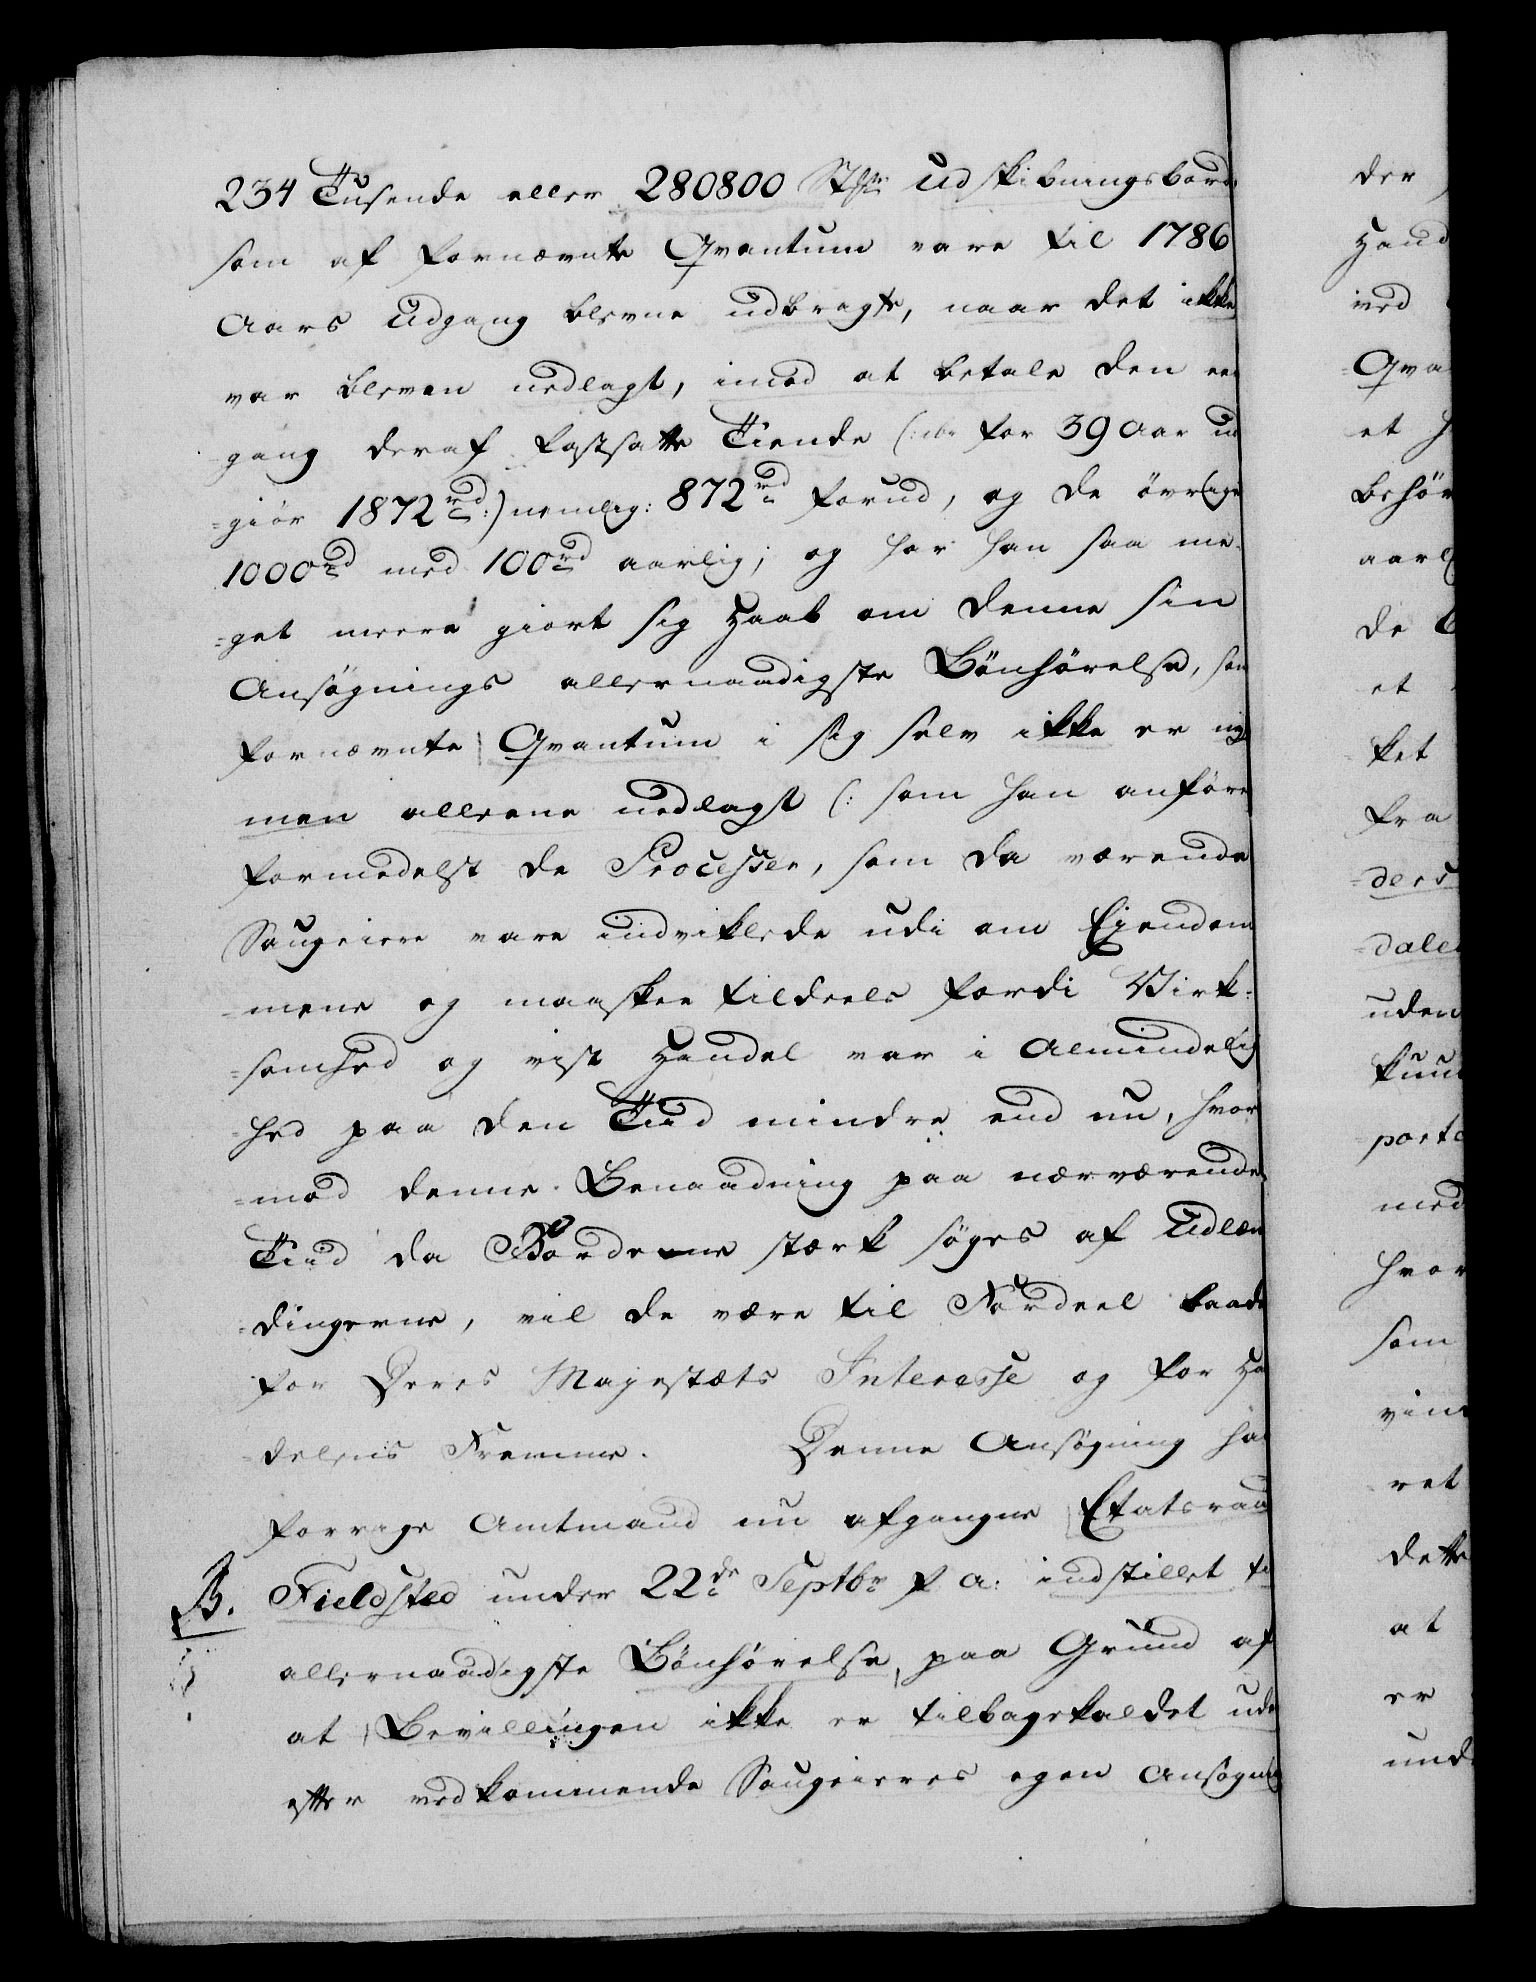 234 Tusende eller 280800 Udskibningsbord,
som af fornævnte Qvantum vare til 1786
Aars Udgang blevne udbragte, naar det ikke
var bleven nedlagt, imod at betale den een
gang deraf fastsatte Tiende (: for 39 Aar ud
giör 1872 rd:) nemlig: 872 rd forud, og de övrige
1000 rd med 100 rd aarlig; og har han saa me-
=get meere giort sig Haab om denne sin
Ansögnings allernaadigste Bönhörelse, som
fornævnte Qvantum i sig selv ikke er nyt
men alleene nedlagt (: som han anförer
formedelst de Processer, som da værende
Saugeiere vare indviklede udi om Eiendom
=mene og maaskee tildeels fordi Virk=
=somhed og vist Handel var i Almindelig
=hed paa den Tiid mindre end nu, hvor
=mod denne Benaadning paa nærværende
Tiid da Bordene stærk söges af Udlæn
=dingerne, vil de være til Fordeel baade
for Deres Majestæts Interesse og for Han
=delens Fremme. Denne Ansögning har
forrige Amtmand nu afgangne Etatsraad
B. Fieldsted under 22de Septbr f. A: indstillet til
allernaadigste Bönhörelse, paa Grund af
at Bevillingen ikke er tilbagekaldet uden
efter vedkommende Saugeieres egen Ansögning
der
Hand
ved
Qva
et h
behör
aarl
de
et
ket
fra
=ders
=dalen
uden
kun
port
med
hvor
som
vin
ret
dette
at
er
und